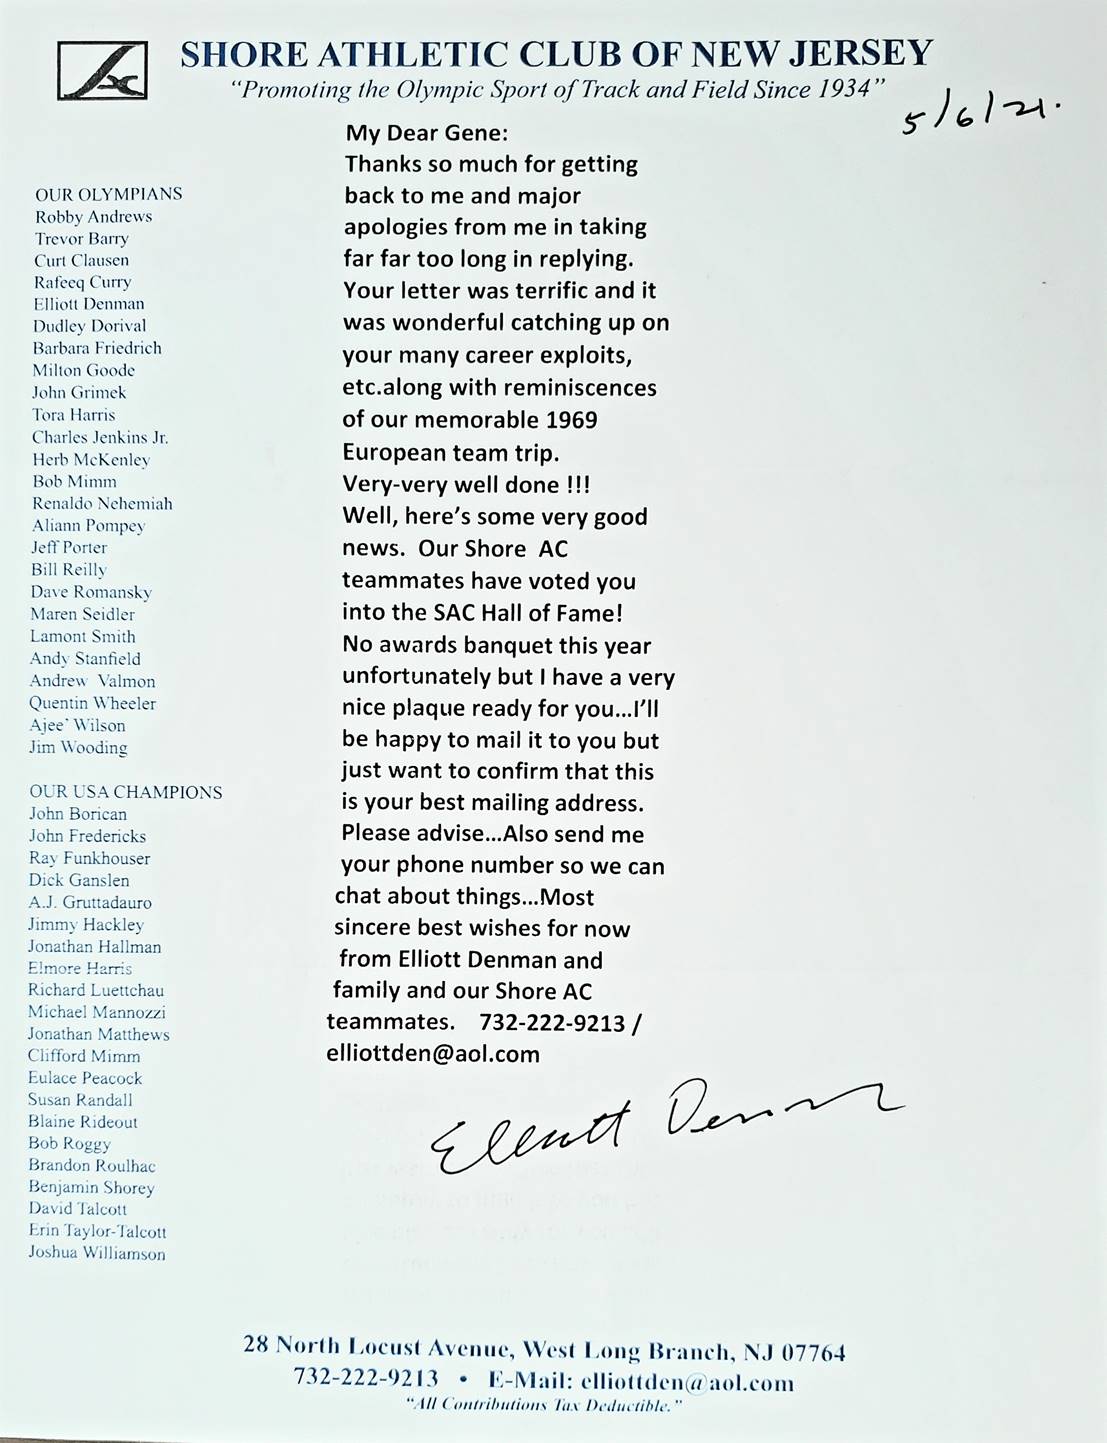 SHORE ATHLETIC CLUB OF NEW JERSEY
"Promoting the Olympic Sport of Track and Field Since 1934"
5/6/21.
My Dear Gene:
Thanks so much for getting
back to me and major
apologies from me in taking
far far too long in replying.
Your letter was terrific and it
was wonderful catching up on
your many career exploits,
etc.along with reminiscences
of our memorable 1969
European team trip.
Very-very well done !!!
Well, here's some very good
news.  Our Shore  AC
teammates have voted you
into the SAC Hall of Fame!
No awards banquet this year
unfortunately but I have a very
nice plaque ready for you...I'll
be happy to mail it to you but
just want to confirm that this
is your best mailing address.
Please advise...Also send me
your phone number so we can
chat about things...Most
sincere best wishes for now
from Elliott Denman and
family and our Shore AC
teammates.   732-222-9213 /
elliottden@aol.com
Elliott Denman
OUR OLYMPIANS
Robby Andrews
Trevor Barry
Curt Clausen
Rafeeq Curry
Elliott Denman
Dudley Dorival
Barbara Friedrich
Milton Goode
John Grimek
Tora Harris
Charles Jenkins Jr.
Herb McKenley
Bob Mimm
Renaldo Nehemiah
Aliann Pompey
Jeff Porter
Bill Reilly
Dave Romansky
Maren Seidler
Lamont Smith
Andy Stanfield
Andrew  Valmon
Quentin Wheeler
Ajee' Wilson
Jim Wooding
OUR USA CHAMPIONS
John Borican
John Fredericks
Ray Funkhouser
Dick Ganslen
A.J. Gruttadauro
Jimmy Hackley
Jonathan Hallman
Elmore Harris
Richard Luettchau
Michael Mannozzi
Jonathan Matthews
Clifford Mimm
Eulace Peacock
Susan Randall
Blaine Rideout
Bob Roggy
Brandon Roulhac
Benjamin Shorey
David Talcott
Erin Taylor-Talcott
Joshua Williamson
28 North Locust Avenue, West Long Branch, NJ 07764
732-222-9213 • E-Mail: elliottden@aol.com
"All Contributions Tax Deductible."